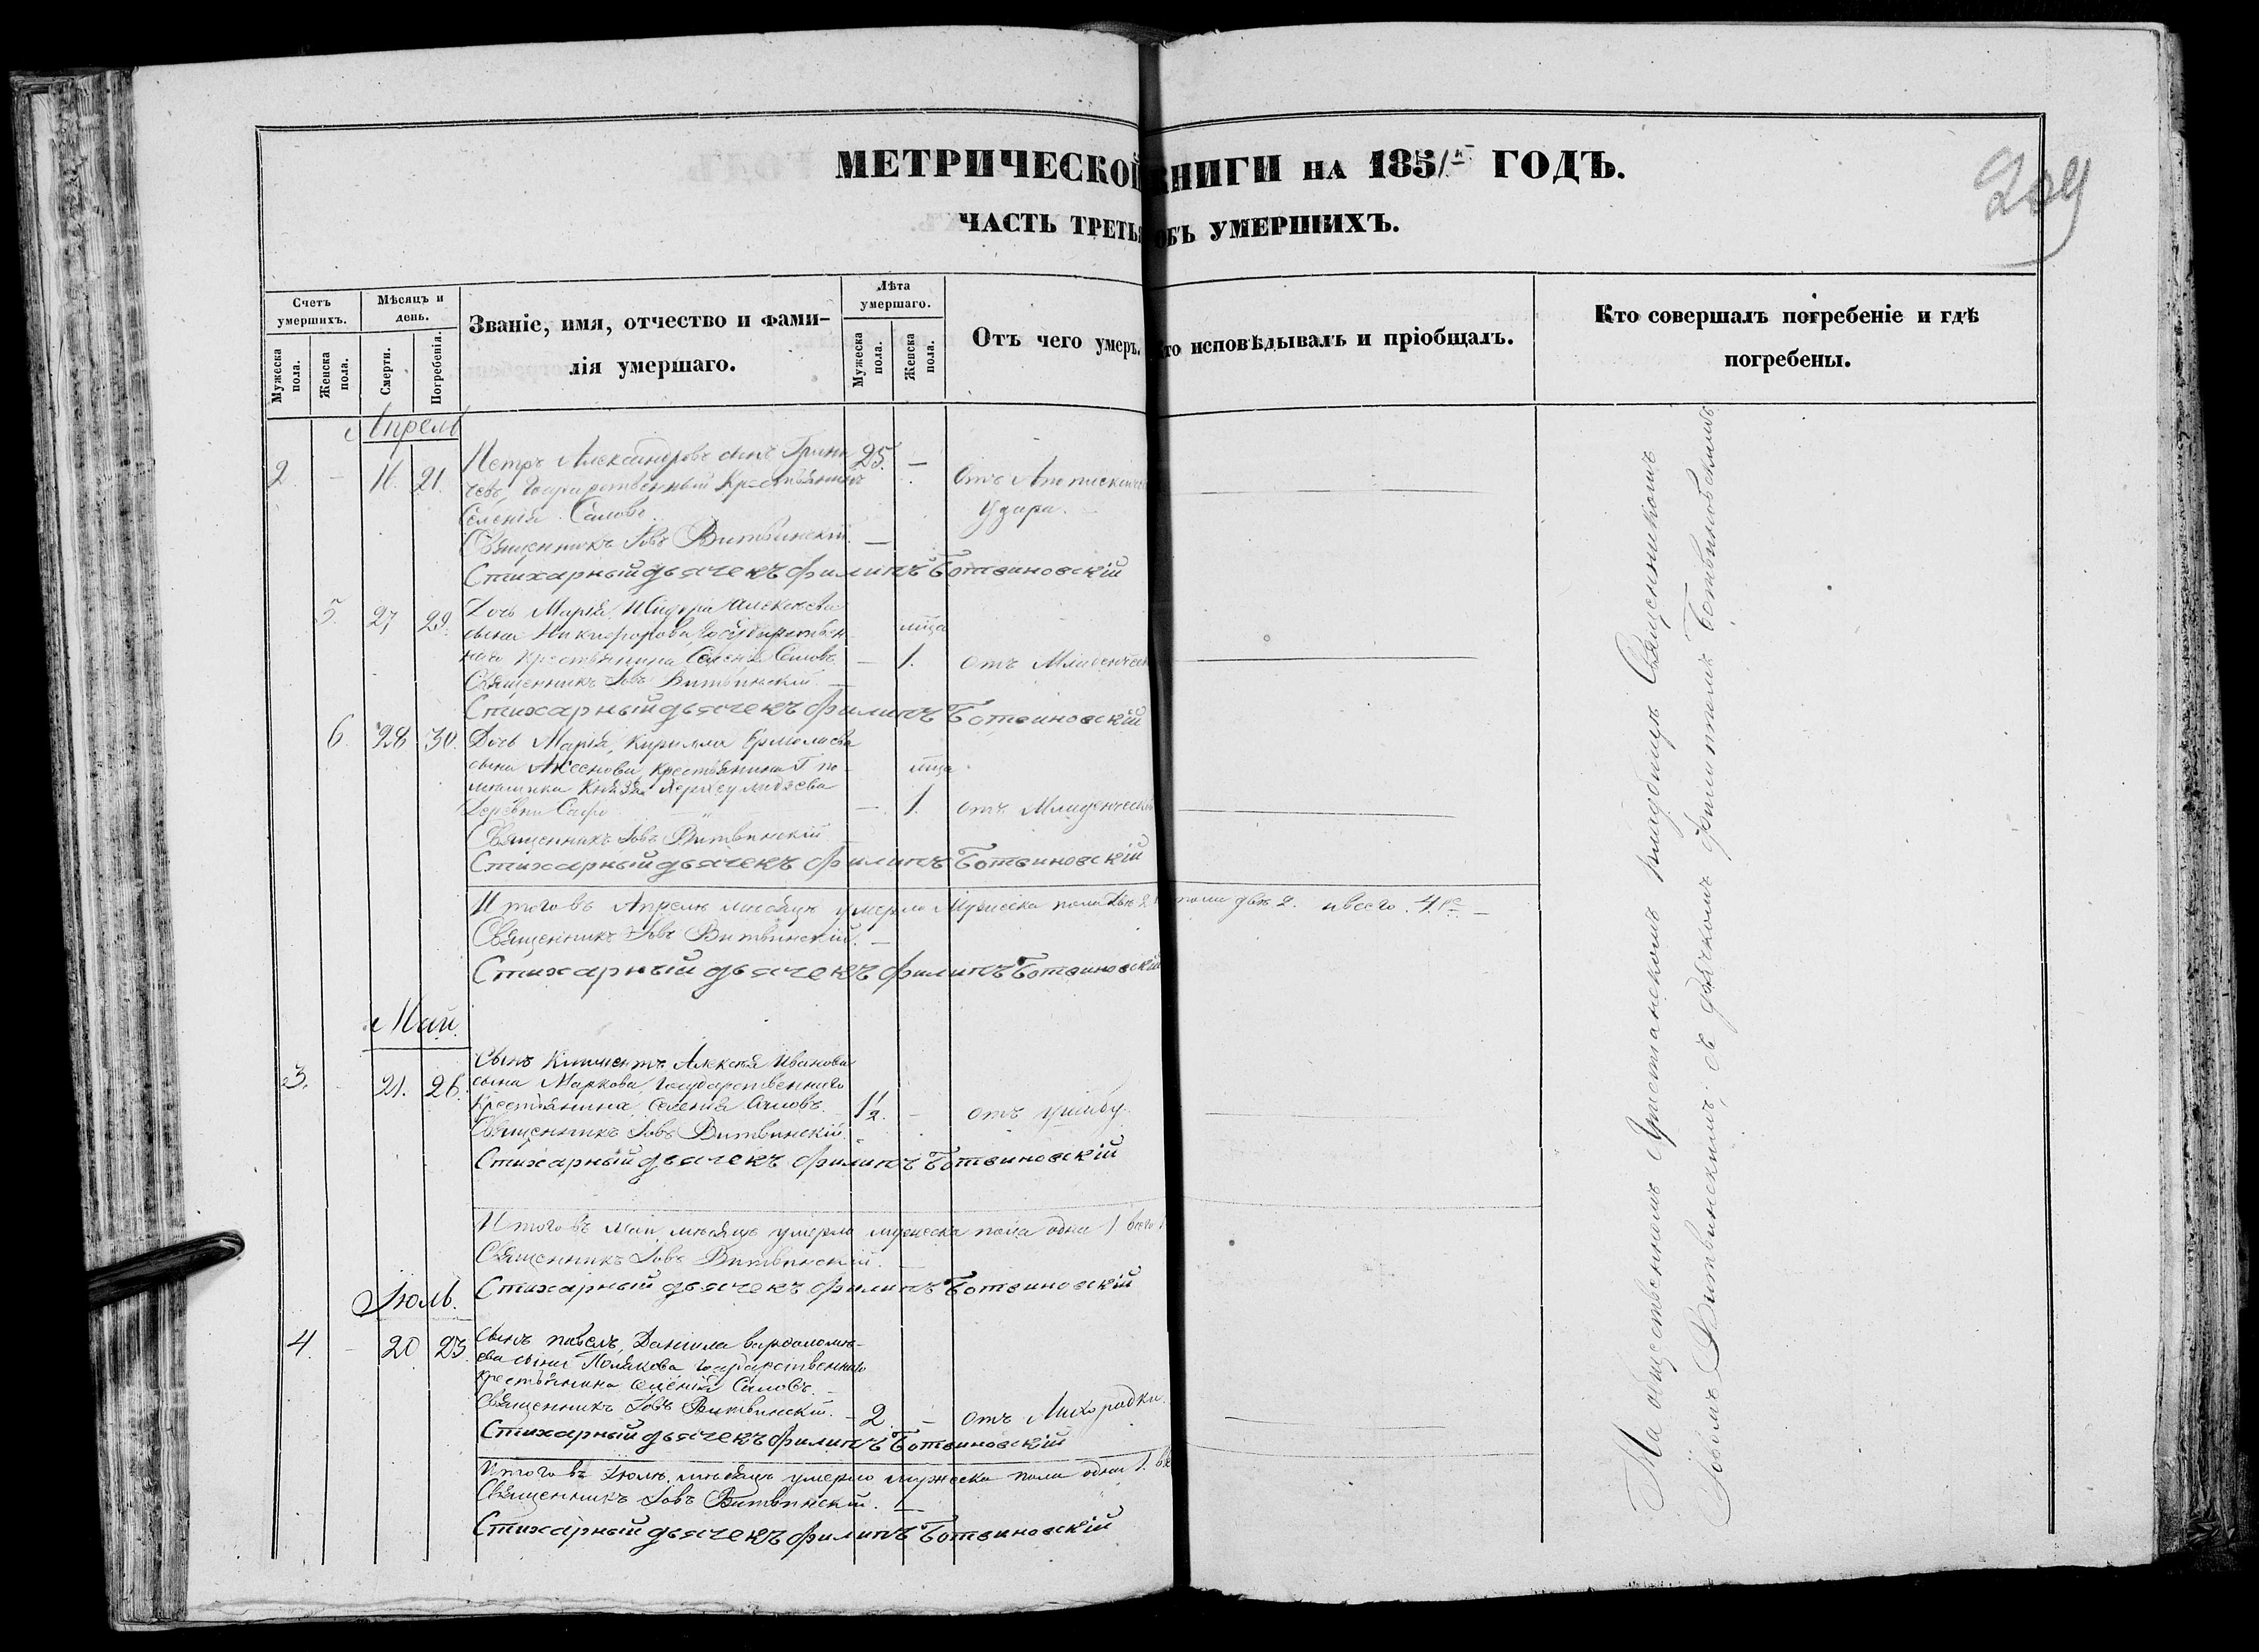 МЕТРИЧЕСКОЙ КНИГИ НА 1851й ГОДЪ.
209
ЧАСТЬ ТРЕТЬЯ ОБЪ УМЕРШИХЪ.
Счетъ умершихъ.
Мужеска пола.
Женска пола.
Мѣсяцъ и день.
Смерти.
Погребенія.
Званіе, имя, отчество и фами-
лія умершаго.
Лѣта умершаго.
Мужеска пола.
Женска пола.
Отъ чего умеръ.
Кто исповѣдывалъ и пріобщалъ.
Кто совершалъ погребеніе и гдѣ
погребены.
Апрель
2. – 21. Петръ Александровъ сынъ 25. –
Государственный Крестьянинъ
Селенія Саловъ
удара.
Священникъ Іовъ Витвинскій. –
Стихарный дьячекъ Филипъ Ботвиновскій
5. 27 29. Дочь Марія, Исидора Алексѣева
сына Никифорова, Государствен
наго крестьянина Селенія Саловъ – 1. отъ Младенческ
Священникъ Іовъ Витвинскій –
Стихарный дьячекъ Филипъ Ботвиновскій
6. 28 30. Дочь Марія, Кирилла Ермолаева
сына Аксенова, Крестьянина Г. по
мѣщика Князя
Деревни – 1. отъ Младенческ
Священникъ Іовъ Витвинскій
Стихарный дьячекъ Филипъ Ботвиновскій
Итого въ Апрелѣ мѣсяцѣ умерло Мужеска пола два 2 пола двѣ 2. и всего 4ре –
Священникъ Іовъ Витвинскій. –
Стихарный дьячекъ Филипъ Ботвиновскій
Май.
3. 21. 26. Сынъ Климентъ Алексѣя Иванова
сына Маркова, Государственнаго
Крестьянина, Селенія Саловъ. 1½. – отъ ушибу.
Священникъ Іовъ Витвинскій.
Стихарный дьячекъ Филипъ Ботвиновскій
Итого въ Маи мѣсяцѣ умерло мужеска пола одна 1 всего 1
Священникъ Іовъ Витвинскій. –
Стихарный дьячекъ Филипъ Ботвиновскій
Іюль.
4. – 20 23. Сынъ Павелъ, Даніила Варѳоломѣ-
ева сына Полякова Государственнаго
Крестьянина Селенія Саловъ. –
Священникъ Іовъ Витвинскій. – 2. – отъ Лихорадки.
Стихарный дьячекъ Филипъ Ботвиновскій
Итого въ Іюлѣ мѣсяцѣ умерло мужеска пола одна 1. вс
Священникъ Іовъ Витвинскій. –
Стихарный дьячекъ Филипъ Ботвиновскій
На общественномъ Христианскомъ кладбищѣ Священникомъ
Іовомъ Витвинскимъ, съ дьячкомъ Филиппомъ Ботвиновскимъ